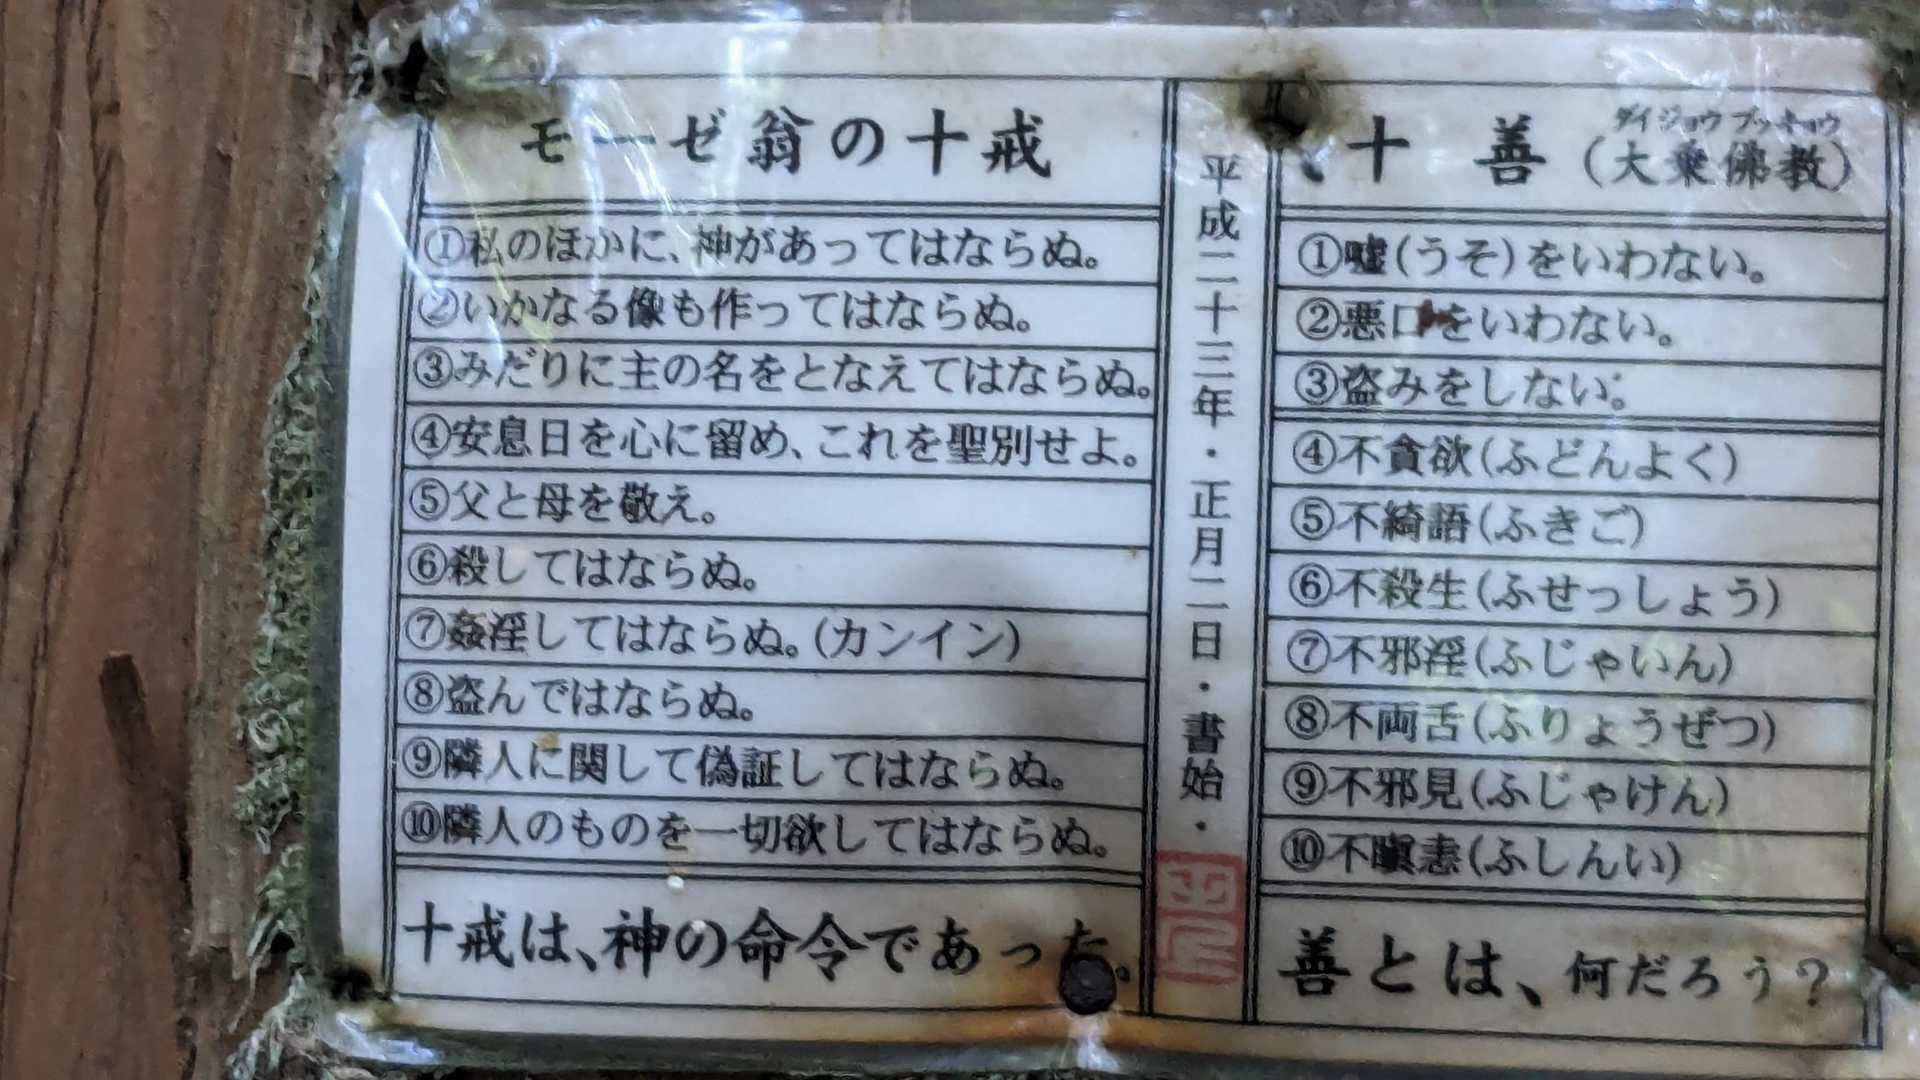 モーゼ翁の十戒
①私のほかに、神があってはならぬ。
②いかなる像も作ってはならぬ。
③みだりに主の名をとなえてはならぬ。
④安息日を心に留め、これを聖別せよ。
⑤父と母を敬え。
⑥殺してはならぬ。
⑦姦淫してはならぬ。(カンイン)
⑧盗んではならぬ。
⑨隣人に関して偽証してはならぬ。
⑩隣人のものを一切欲してはならぬ。
十戒は、神の命令であった。
平成二十三年・正月二日・書始・
ダイジョウブッキョウ
十善(大乗佛教)
①嘘(うそ)をいわない。
②悪口をいわない。
③盗みをしない。
④不貪欲(ふどんよく)
⑤不綺語(ふきご)
⑥不殺生(ふせっしょう)
⑦不邪淫(ふじゃいん)
⑧不両舌(ふりょうぜつ)
⑨不邪見(ふじゃけん)
⑩不瞋恚(ふしんい)
善とは、何だろう?